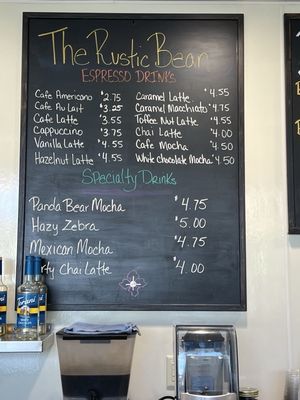 The Rustic Bean
Espresso Drinks
Cafe Americano $2.75
Cafe Au Lait $3.25
Cafe Latte $3.55
Cappuccino $3.75
Vanilla Latte $4.55
Hazelnut Latte $4.55
Caramel Latte $4.55
Caramel Macchiato $4.75
Toffee Nut Latte $4.55
Chai Latte $4.00
Cafe Mocha $4.50
White chocolate Mocha $4.50
Specialty Drinks
Panda Bear Mocha $4.75
Hazy Zebra $5.00
Mexican Mocha $4.75
rty Chai Latte $4.00
TORANI